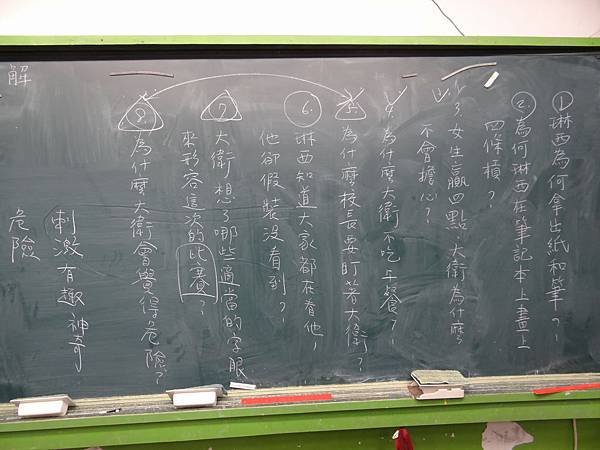 ①琳西為何拿出紙和筆?
②為何琳西在筆記本上畫上
四條槓?
3.女生贏四點,大衛為什麼
不會擔心?
4.為什麼大衛不吃午餐?
5.為什麼校長要盯著大衛?
⑥琳西知道大家都在看他,
他卻假裝沒看到?
7.大衛想了哪些適當的字眼
來形容這次的比賽?
8.為什麼大衛會覺得危險?
刺激有趣神奇
危險
解